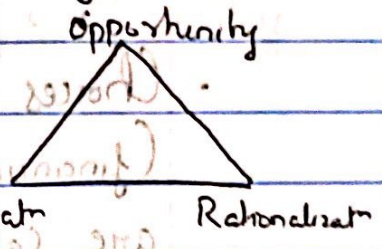 Opportunity
atn Rationalizatn